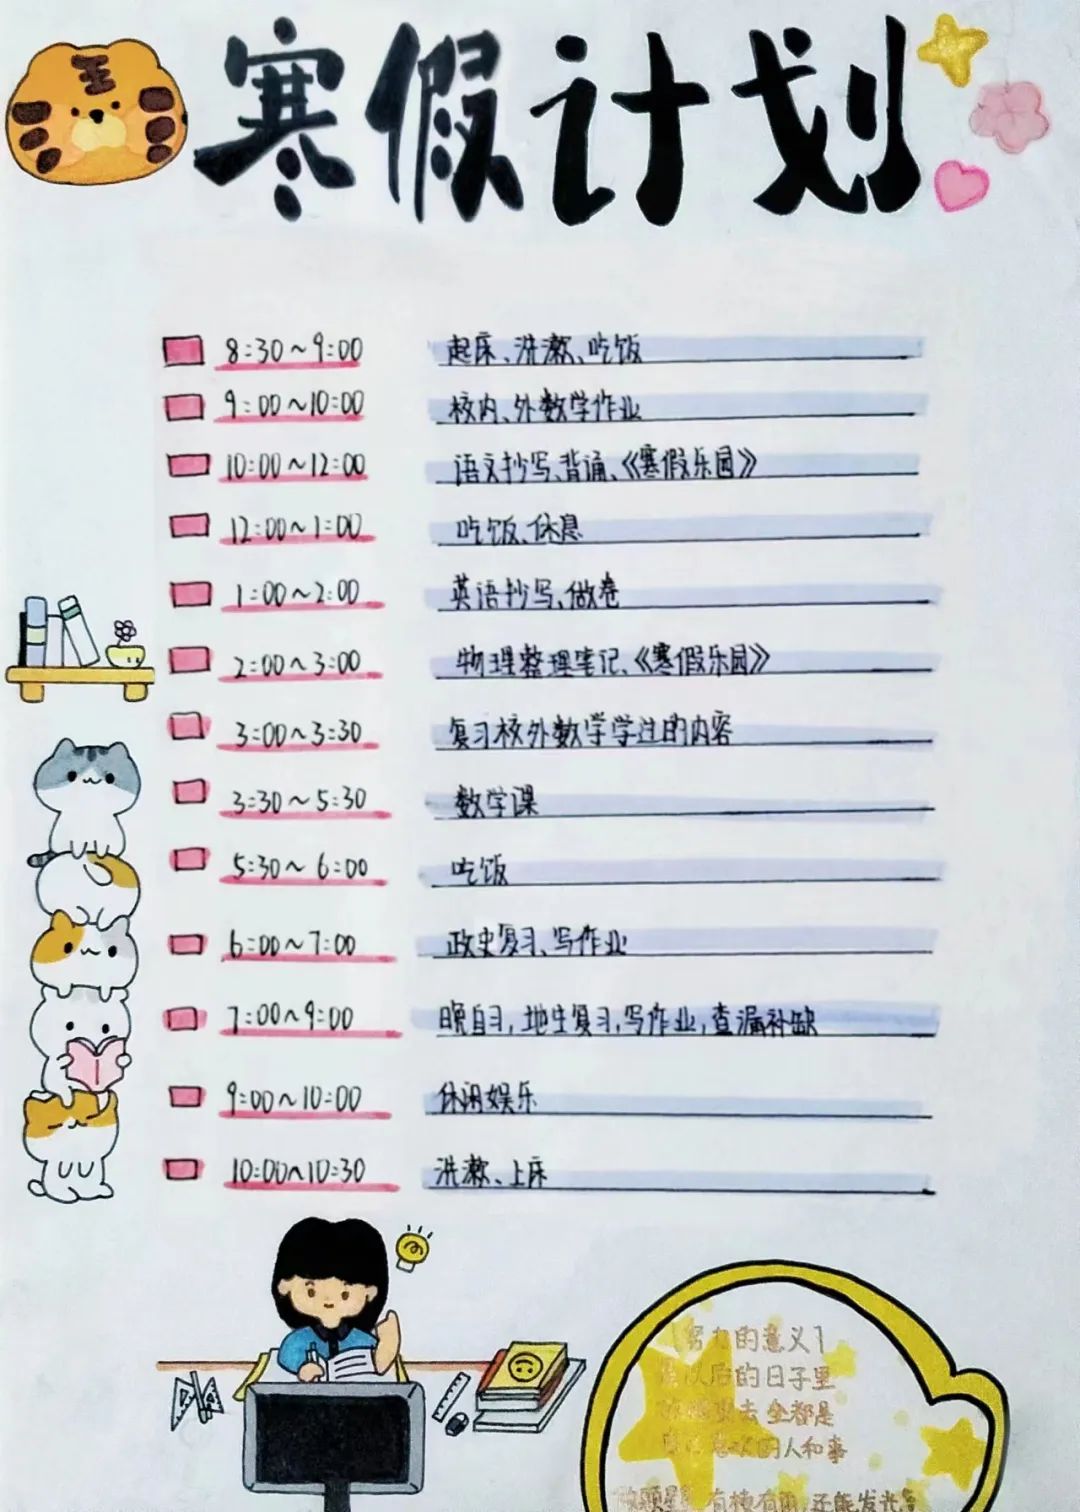 寒假计划
王
8:30~9:00 起床、洗漱、吃饭
9:00~10:00 校内、外数学作业
10:00~12:00 语文抄写、背诵、《寒假乐园》
12:00~1:00 吃饭、休息
1:00~2:00 英语抄写、做卷
2:00~3:00 物理整理笔记、《寒假乐园》
3:00~3:30 复习校外数学学过的内容
3:30~5:30 数学课
5:30~6:00 吃饭
6:00~7:00 政史复习、写作业
7:00~9:00 晚自习,地生复习,写作业,查漏补缺
9:00~10:00 休闲娱乐
10:00~10:30 洗漱、上床
努力的意义
以后的日子里
去全都是
人和事
有 有 还能发光